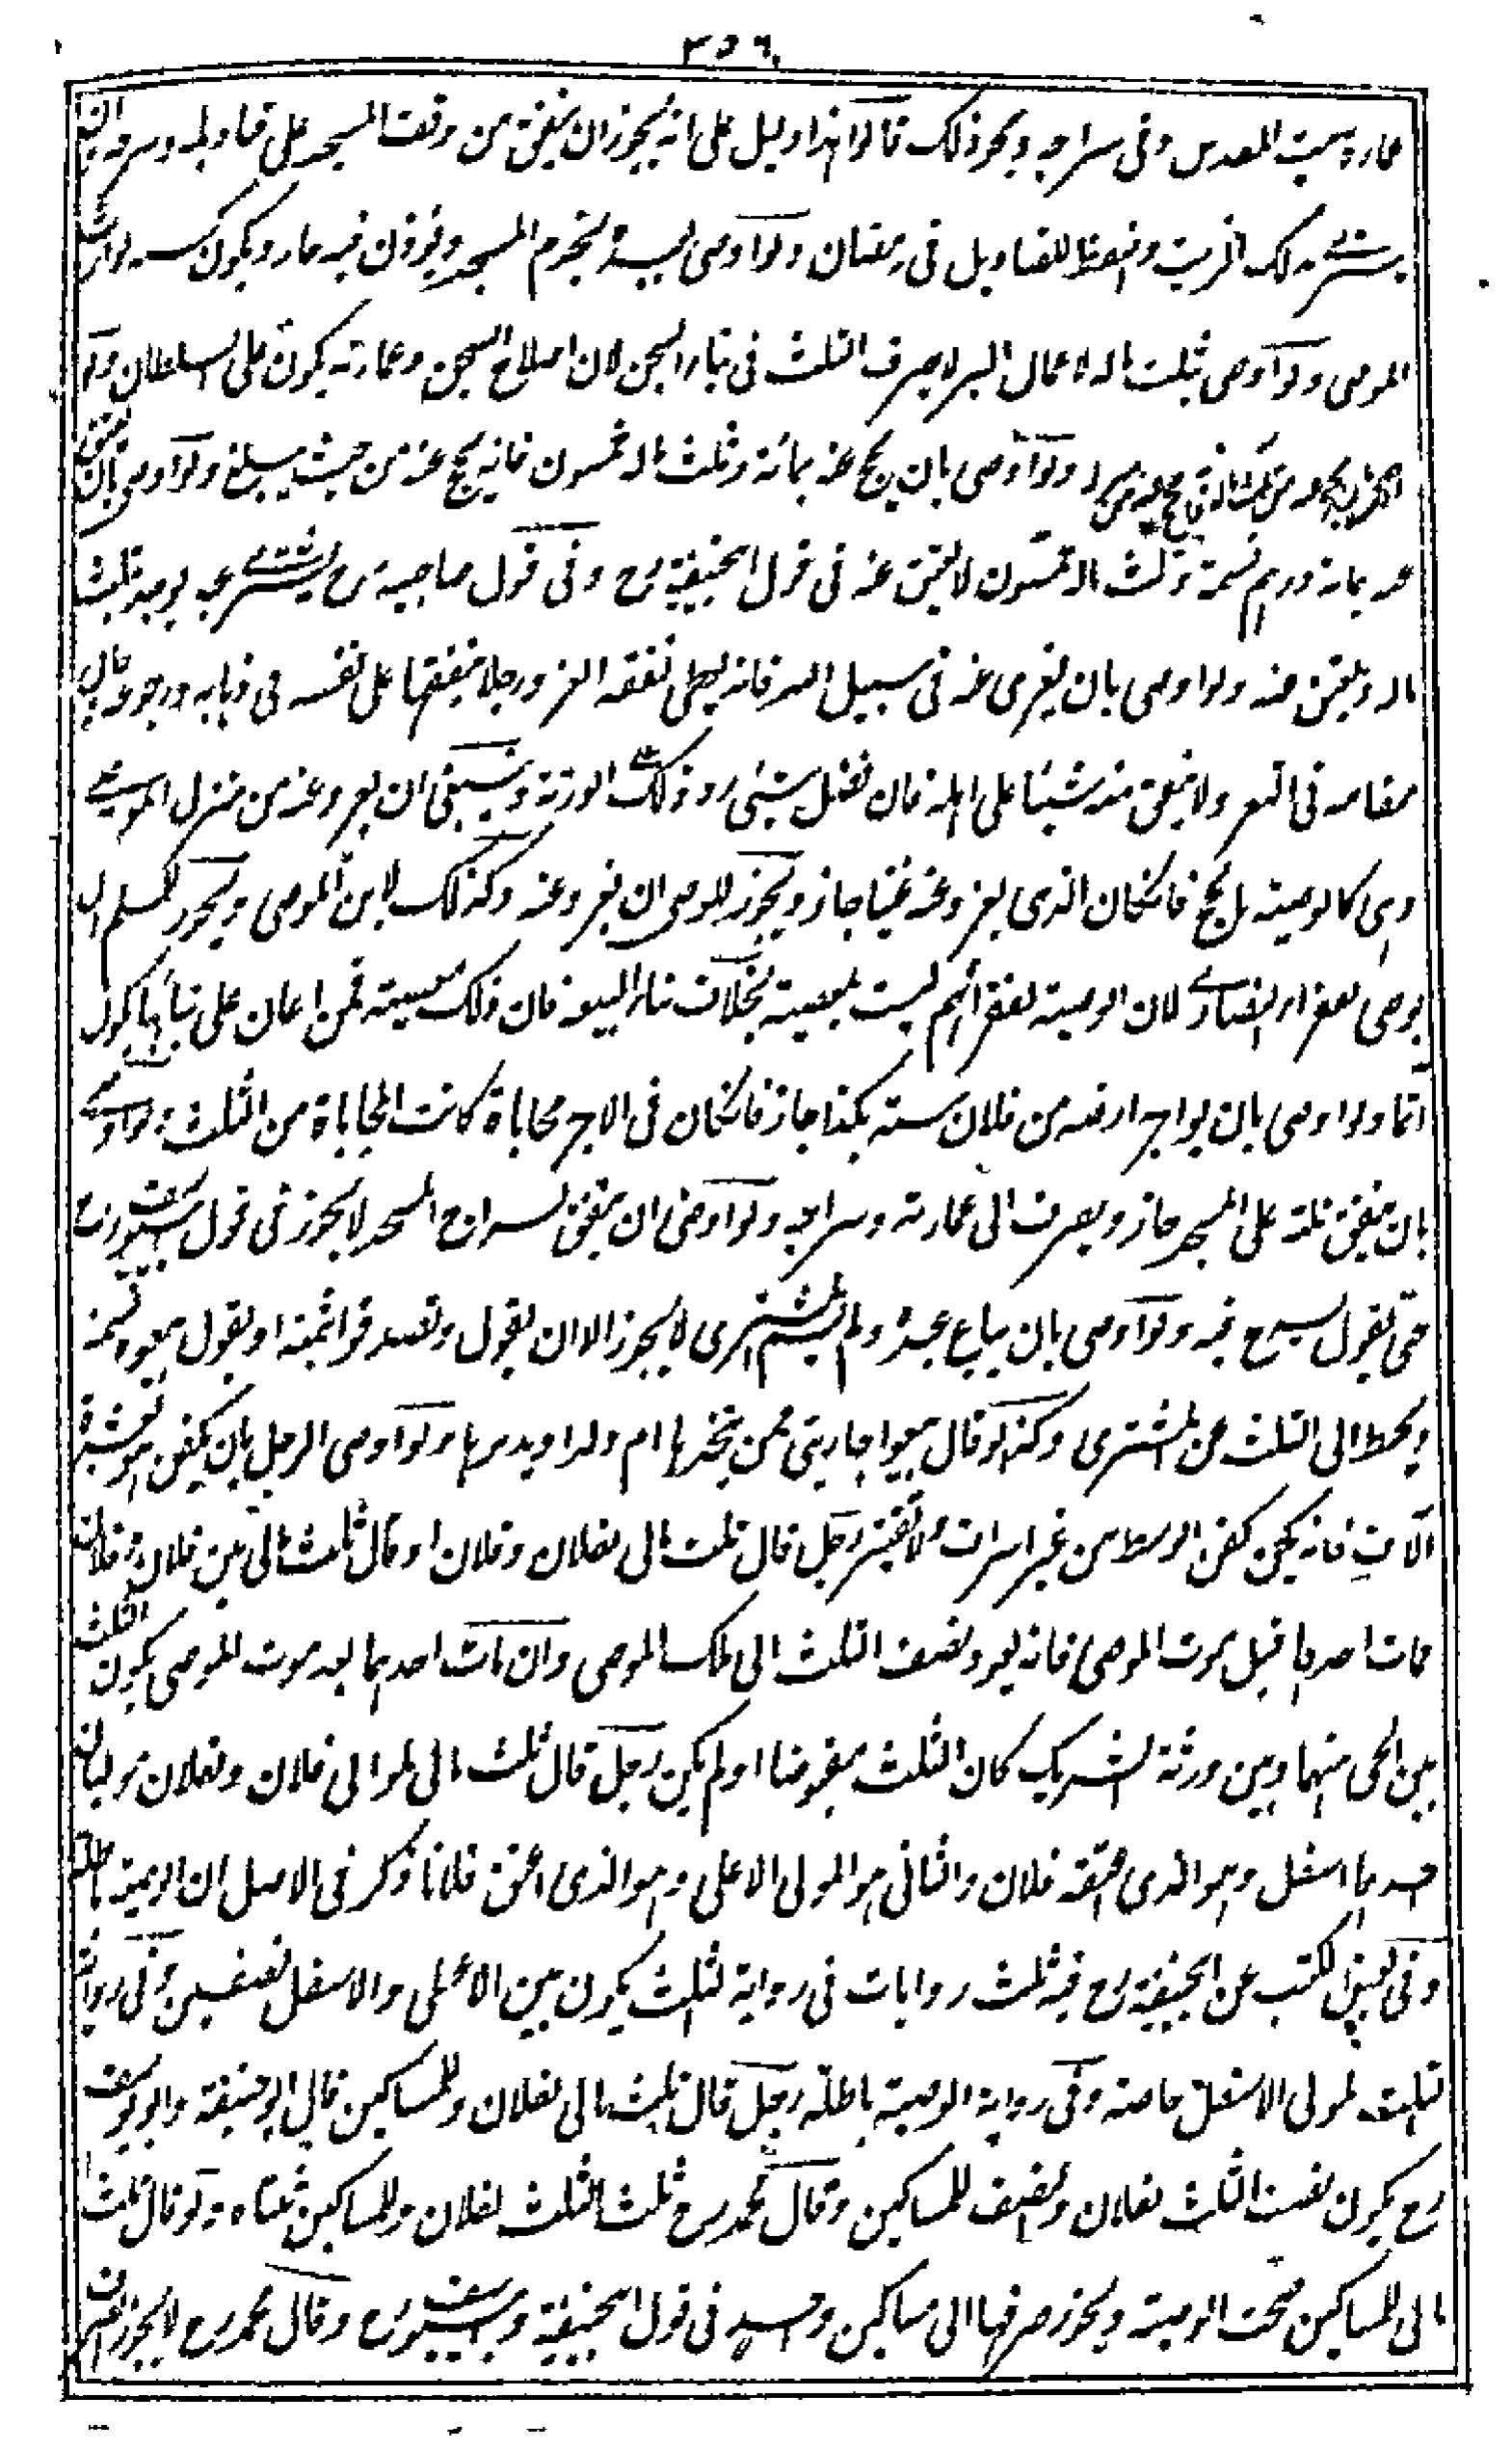 ٣٥٦
عمارة بيت المقدس وفى سراجه ونحو ذلك قالوا هذا دليل على انه يجوز ان ينفق من وقف المسجد على قناديله وسرجه وان
يشترى بذلك الزيت والنفط للقناديل فى رمضان ولو اوصى بعبده يخدم المسجد ويوذن فيه جاز ويكون كسبه لوارث
الموصى ولو اوصى بثلث ماله لاعمال البر لا يصرف الثلث فى بناء السجن لان اصلاح السجن وعمارته يكون على السلطان ولو
ولو اوصى بان يحج عنه بمائة وثلث ماله خمسون فانه يحج عنه من حيث يبلغ ولو اوصى بان يعتق
عنه بمائة درهم نسمة وثلث ماله خمسون لا يعتق عنه فى قول ابيحنيفة رح وفى قول صاحبيه رح يشترى عبد يوجد بثلث
ماله ويعتق عنه ولو اوصى بان يغزى عنه فى سبيل الله فانه يعطى نفقة الغزو رجلا ينفقها على نفسه فى ذهابه ورجوعه وحال
مقامه فى الثغر ولا ينفق منه شيئا على اهله فان فضل شئ رد ذلك الى الورثة وينبغى ان يغزو عنه من منزل الموصى
وهى كالوصية بالحج فانكان الذى يغزو عنه غنيا جاز ويجوز للوصى ان يغزو عنه وكذلك لابن الموصى ويجوز للمسلم ان
يوصى لفقراء النصارى لان الوصية لفقرائهم ليست بمعصية بخلاف بناء البيعة فان ذلك معصية فمن اعان على بنائها يكون
آثما ولو اوصى بان يواجر ارضه من فلان سنة بكذا جاز فانكان فى الاجر محاباة كانت المحاباة من الثلث ولو اوصى
بان ينفق ثلثه على المسجد جاز ويصرف الى عمارته وسراجه ولو اوصى ان ينفق لسراج المسجد لا يجوز فى قول ابييوسف رح
حتى يقول يسرج فيه ولو اوصى بان يباع عبده ولم يسم المشترى لا يجوز الا ان يقول وتصدقوا بثمنه او يقول بيعوه نسمة
ويحط الى الثلث عن المشترى وكذا لو قال بيعوا جاريتى ممن يتخذها ام ولد او يدبرها ولو اوصى الرجل بان يكفن هو بعشرة
آلاف فانه يكفن كفن الوسط من غير اسراف ولا تقتير رجل قال ثلث مالى لفلان وفلان او قال ثلث مالى بين فلان وفلان
فمات احدهما قبل موت الموصى فانه يعود نصف الثلث الى ملك الموصى وان مات احدهما بعد موت الموصى يكون الثلث
بين الحى منهما وبين ورثة الشريك كان الثلث مقبوضا او لم يكن رجل قال ثلث مالى لموالى فلان ولفلان موليان
احدهما اسفل وهو الذى اعتقه فلان والثانى هو المولى الاعلى وهو الذى اعتق فلانا ذكر فى الاصل ان الوصية باطلة
وفى بعض الكتب عن ابيحنيفة رح فيه ثلث روايات فى رواية الثلث يكون بين الاعلى والاسفل نصفين وفى رواية
الثلث لمولى الاسفل خاصة وفى رواية الوصية باطلة رجل قال ثلث مالى لفلان وللمساكين قال ابو حنيفة وابو يوسف
رح يكون نصف الثلث لفلان والنصف للمساكين وقال محمد رح ثلث الثلث لفلان وللمساكين ثلثاه ولو قال ثلث
مالى للمساكين صحت الوصية ويجوز صرفها الى مساكين وحد فى قول ابيحنيفة وابييوسف رح وقال محمد رح لا يجوز الصرف